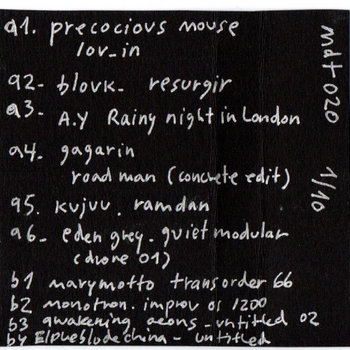 a1. precocious mouse
lov_in
a2- blovk_ resurgir
a3- A.Y Rainy night in London
a4- gagarin
road man (concrete edit)
a5. kujuu. ramdan
a6- eden grey. quiet modular
(drone 01)
b1 marymotto transorder 66
b2 monotron. improv os 1200
b3 awakening aeons - untitled 02
b4 Elpueblodechina - untitled
mdt-020 1/10